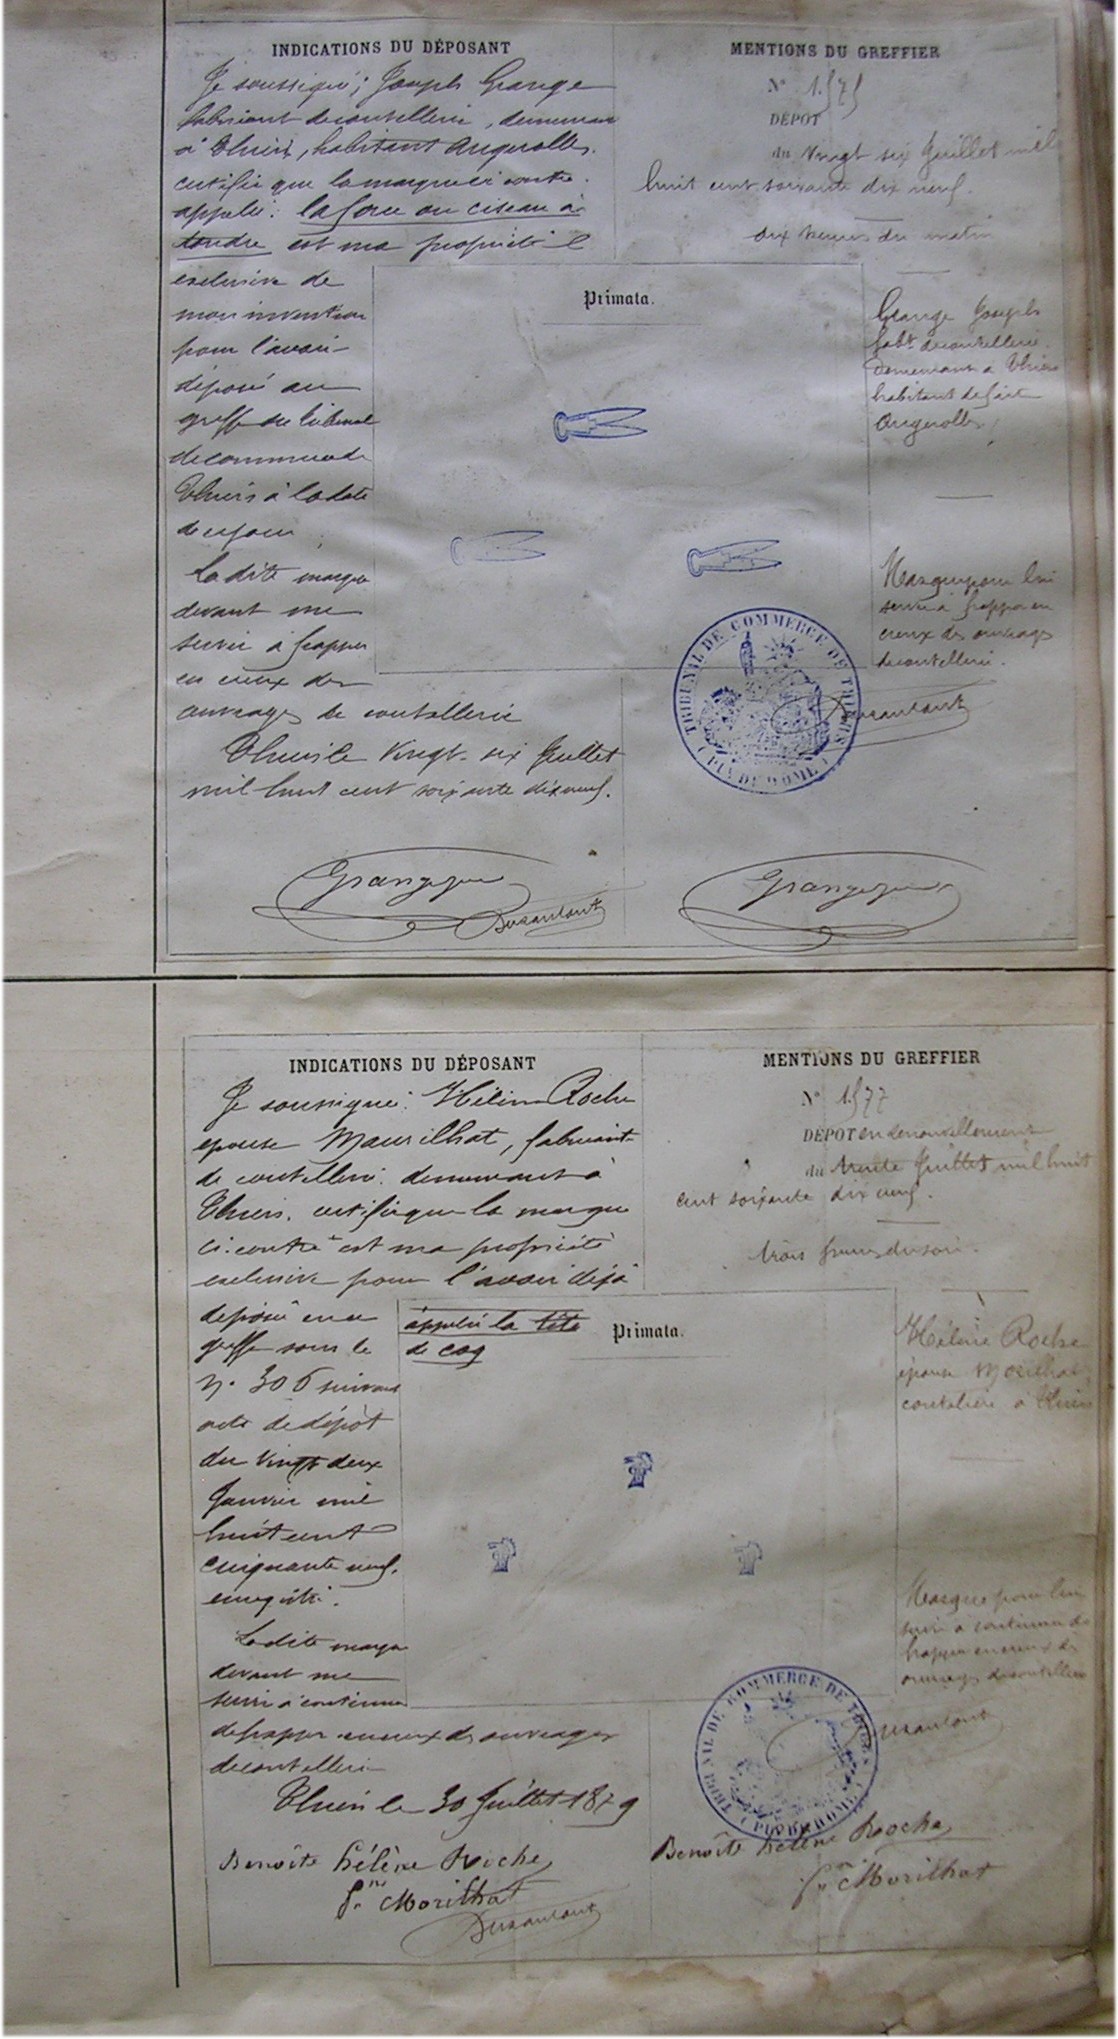 INDICATIONS DU DÉPOSANT
Je soussigné, Joseph Grange
fabricant de coutellerie, demeurant
à Thiers, habitant Augerolles.
certifie que la marque ci contre
appelée: la force ou ciseau à
tondre est ma propriété
exclusive de
mon invention
pour l'avoir
déposé au
greffe du tribunal
de commerce de
Thiers à la date
de ce jour
La dite marque
devant me
servir à frapper
en creux des
ouvrages de coutellerie
Thiers le vingt-six Juillet
mil huit cent soixante dix neuf.
Grange
Dusautant
MENTIONS DU GREFFIER
N° 1575
DÉPOT
du vingt six Juillet mil
huit cent soixante dix neuf.
dix heures du matin
Primata.
Grange Joseph
fabt de coutellerie
demeurant à Thiers
habitant de fait
Augerolles
Marque pour lui
servir à frapper en
creux des ouvrages
de coutellerie.
TRIBUNAL DE COMMERCE DE THIERS
(PUY DE DOME)
INDICATIONS DU DÉPOSANT
Je soussigné: Hélène Roche
épouse Maurilhat, fabricant
de coutellerie demeurant à
Thiers. certifie que la marque
ci-contre est ma propriété
exclusive pour l'avoir déjà
déposé en ce
greffe sous le
N° 306 suivant
acte de dépôt
du vingt deux
Janvier mil
huit cent
cinquante neuf.
enregistré.
La dite marque
devant me
servir à continuer
de frapper en creux des ouvrages
de coutellerie
Thiers le 30 Juillet 1879
Benoîte hélène Roche
fme Morilhat
MENTIONS DU GREFFIER
N° 1577
DÉPOT en renouvellement
du trente Juillet mil huit
cent soixante dix neuf.
trois heures du soir.
appelée la tête
de coq
Primata.
Hélène Roche
épouse Morilhat
coutelière à Thiers
Marque pour lui
servir à continuer de
frapper en creux des
ouvrages de coutellerie
TRIBUNAL DE COMMERCE DE THIERS
(PUY DE DOME)
Benoîte hélène Roche
fme Morilhat